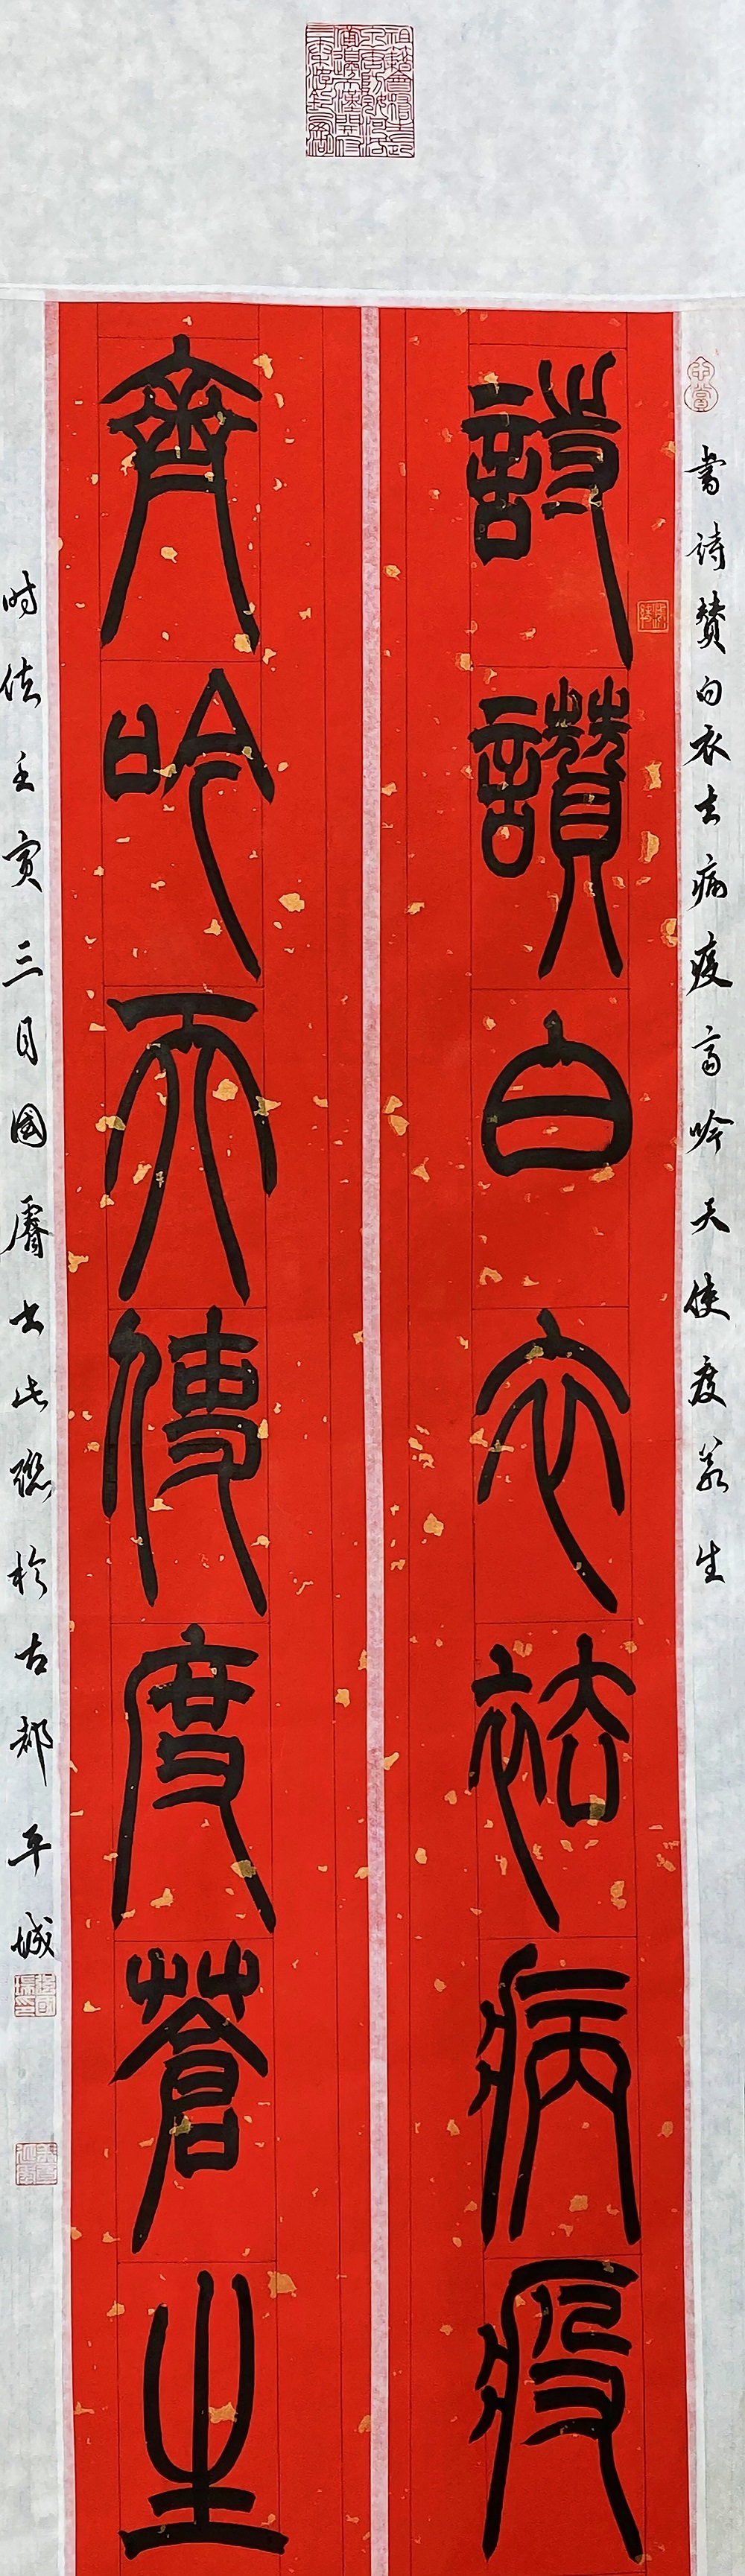 書诗赞白衣去病疫齐吟天使度苍生
詩讚白衣祛病疫
齊吟天使度蒼生
时值壬寅三月國膺书此聯於古都平城